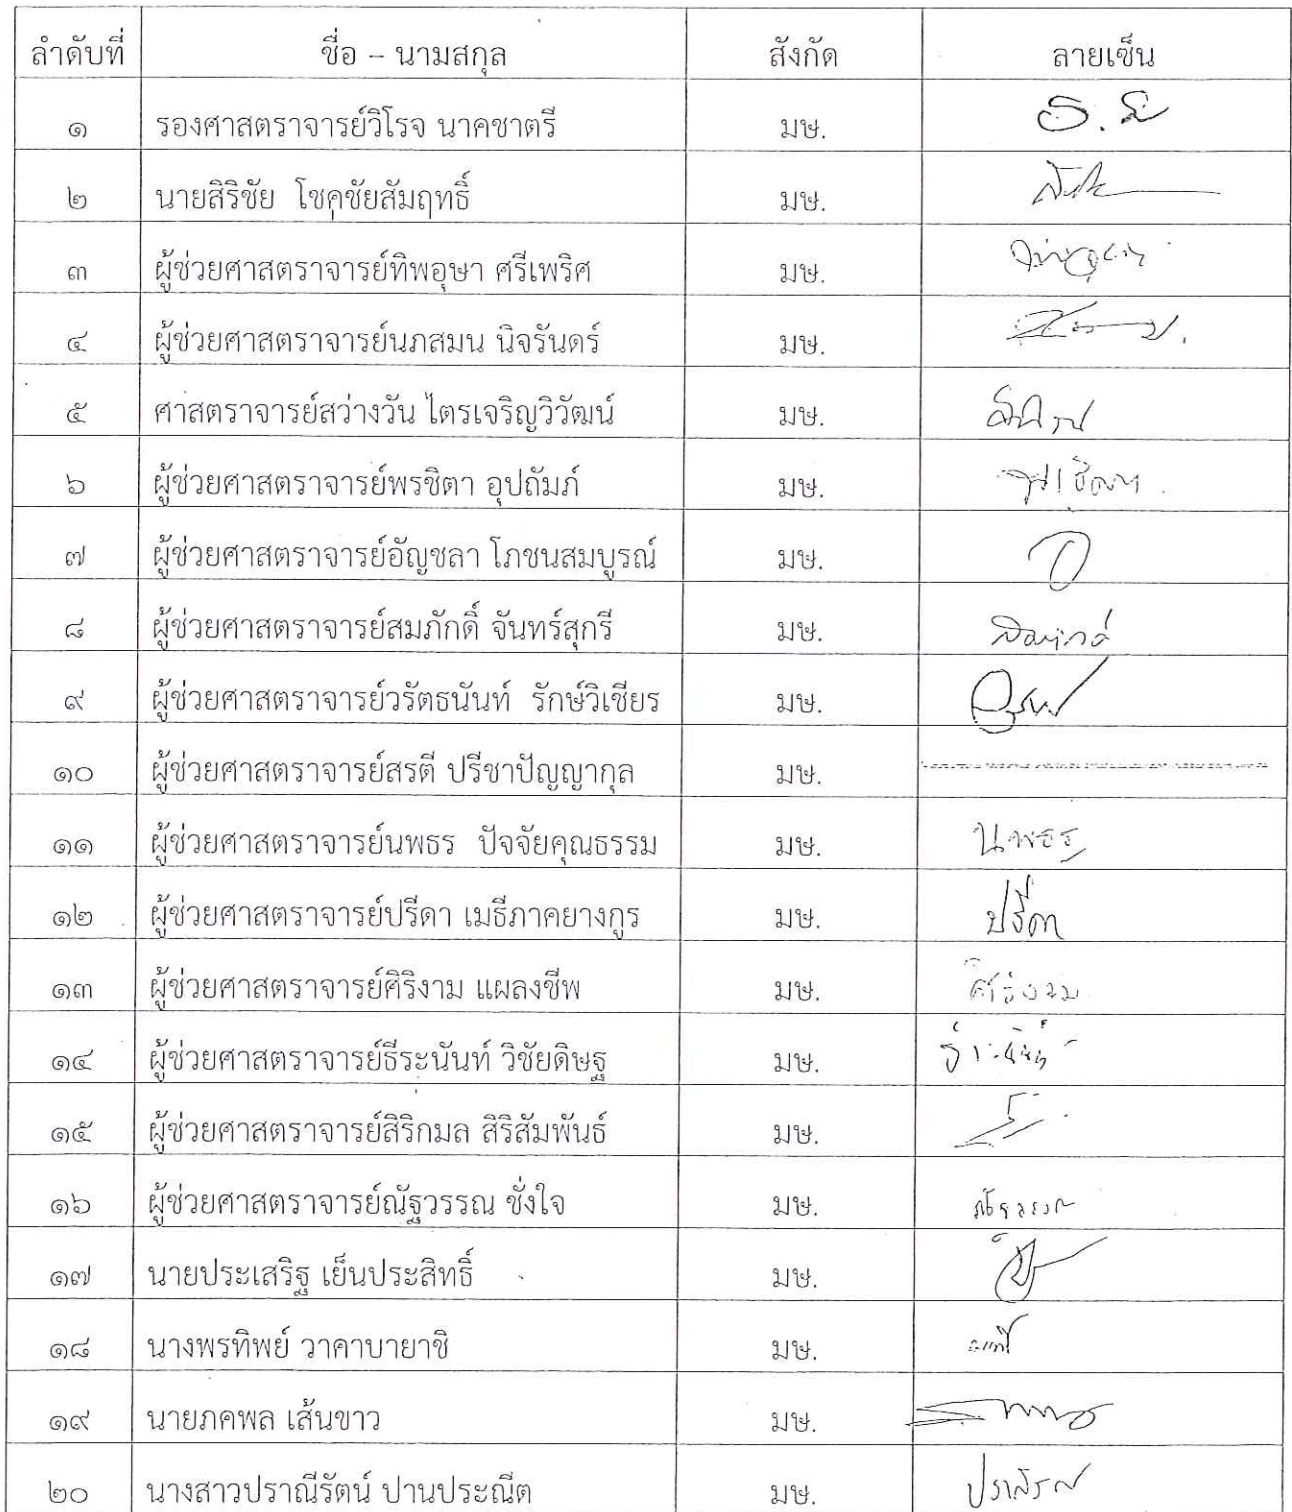 ลำดับที่ ชื่อ – นามสกุล สังกัด ลายเซ็น
๑ รองศาสตราจารย์วิโรจ นาคชาตรี มษ.
๒ นายสิริชัย โชคชัยสัมฤทธิ์ มษ.
๓ ผู้ช่วยศาสตราจารย์ทิพอุษา ศรีเพริศ มษ.
๔ ผู้ช่วยศาสตราจารย์นภสมน นิจรันดร์ มษ.
๕ ศาสตราจารย์สว่างวัน ไตรเจริญวิวัฒน์ มษ.
๖ ผู้ช่วยศาสตราจารย์พรชิตา อุปถัมภ์ มษ.
๗ ผู้ช่วยศาสตราจารย์อัญชลา โภชนสมบูรณ์ มษ.
๘ ผู้ช่วยศาสตราจารย์สมภักดิ์ จันทร์สุกรี มษ.
๙ ผู้ช่วยศาสตราจารย์วรัตธนันท์ รักษ์วิเชียร มษ.
๑๐ ผู้ช่วยศาสตราจารย์สรตี ปรีชาปัญญากุล มษ.
๑๑ ผู้ช่วยศาสตราจารย์นพธร ปัจจัยคุณธรรม มษ. นพธร
๑๒ ผู้ช่วยศาสตราจารย์ปรีดา เมธีภาคยางกูร มษ. ปรีดา
๑๓ ผู้ช่วยศาสตราจารย์ศิริงาม แผลงชีพ มษ. ศิริงาม
๑๔ ผู้ช่วยศาสตราจารย์ธีระนันท์ วิชัยดิษฐ มษ. ธีระนันท์
๑๕ ผู้ช่วยศาสตราจารย์สิริกมล สิริสัมพันธ์ มษ.
๑๖ ผู้ช่วยศาสตราจารย์ณัฐวรรณ ชั่งใจ มษ. ณัฐวรรณ
๑๗ นายประเสริฐ เย็นประสิทธิ์ มษ.
๑๘ นางพรทิพย์ วาคาบายาชิ มษ.
๑๙ นายภคพล เส้นขาว มษ.
๒๐ นางสาวปราณีรัตน์ ปานประณีต มษ.